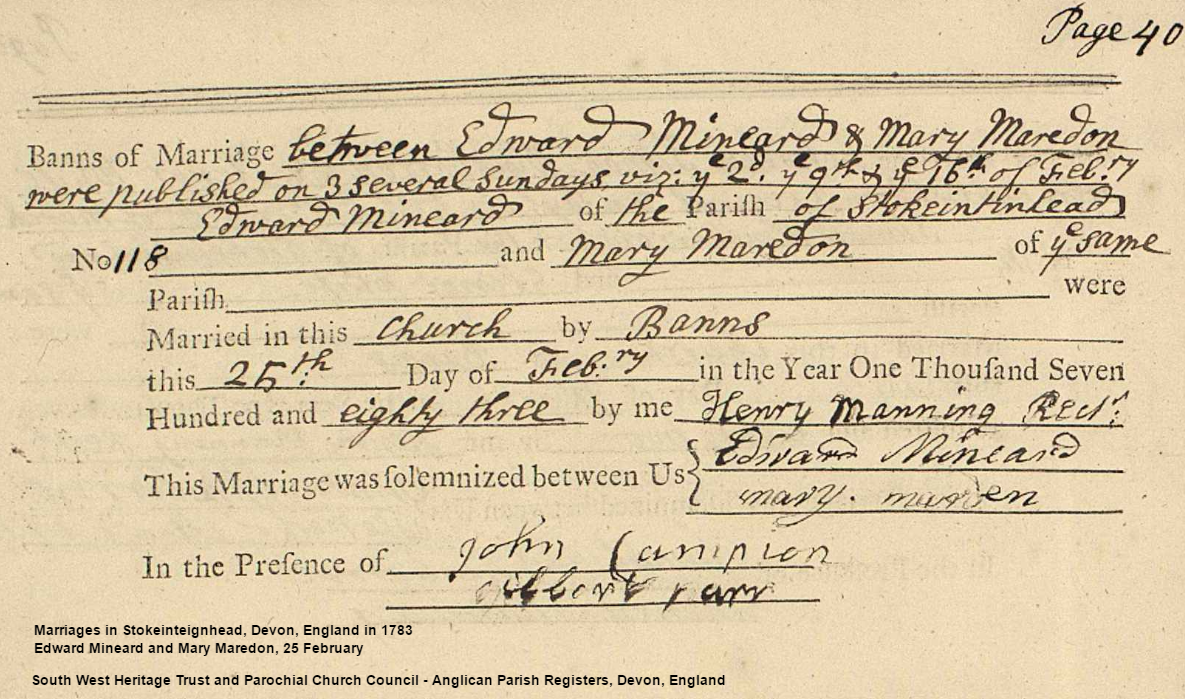 Page 40
Banns of Marriage between Edward Mineard & Mary Maredon
were published on 3 several Sundays viz: yᵉ 2ᵈ. yᵉ 9ᵗʰ & yᵉ 16ᵗʰ of Feb:ʳʸ
Edward Mineard of the Pariſh of Stokeintinhead
No 118 and Mary Maredon of yᵉ same
Pariſh were
Married in this Church by Banns
this 25ᵗʰ Day of Feb:ʳʸ in the Year One Thouſand Seven
Hundred and eighty three by me Henry Manning Rectʳ:
This Marriage was ſolemnized between Us { Edward Mineard
mary. marden
In the Preſence of John Campion
Gilbert Parr
Marriages in Stokeinteignhead, Devon, England in 1783
Edward Mineard and Mary Maredon, 25 February
South West Heritage Trust and Parochial Church Council - Anglican Parish Registers, Devon, England